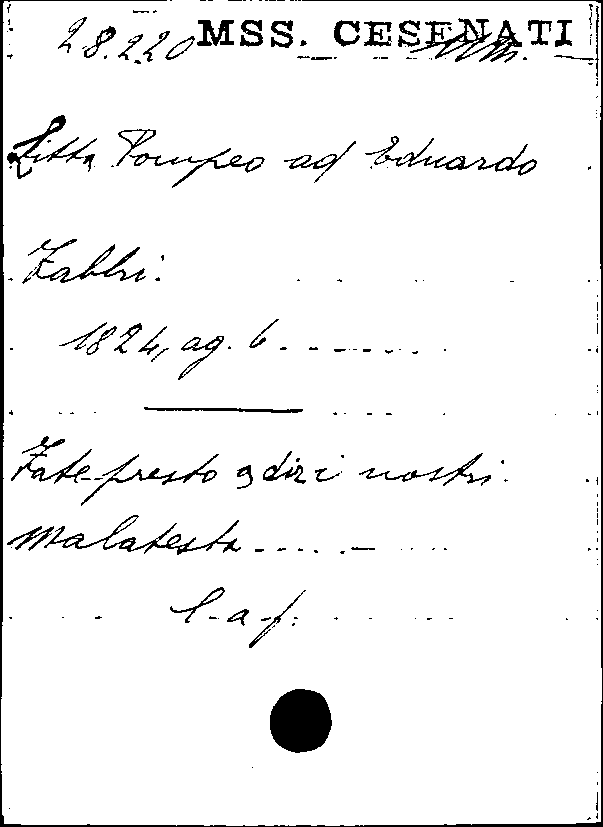 28.2.20 MSS. CESENATI
Litta Pompeo ad Eduardo
Fabbri.
1824, ag. 6.
Fate presto a dir i nostri
Malatesta
l. a. f.